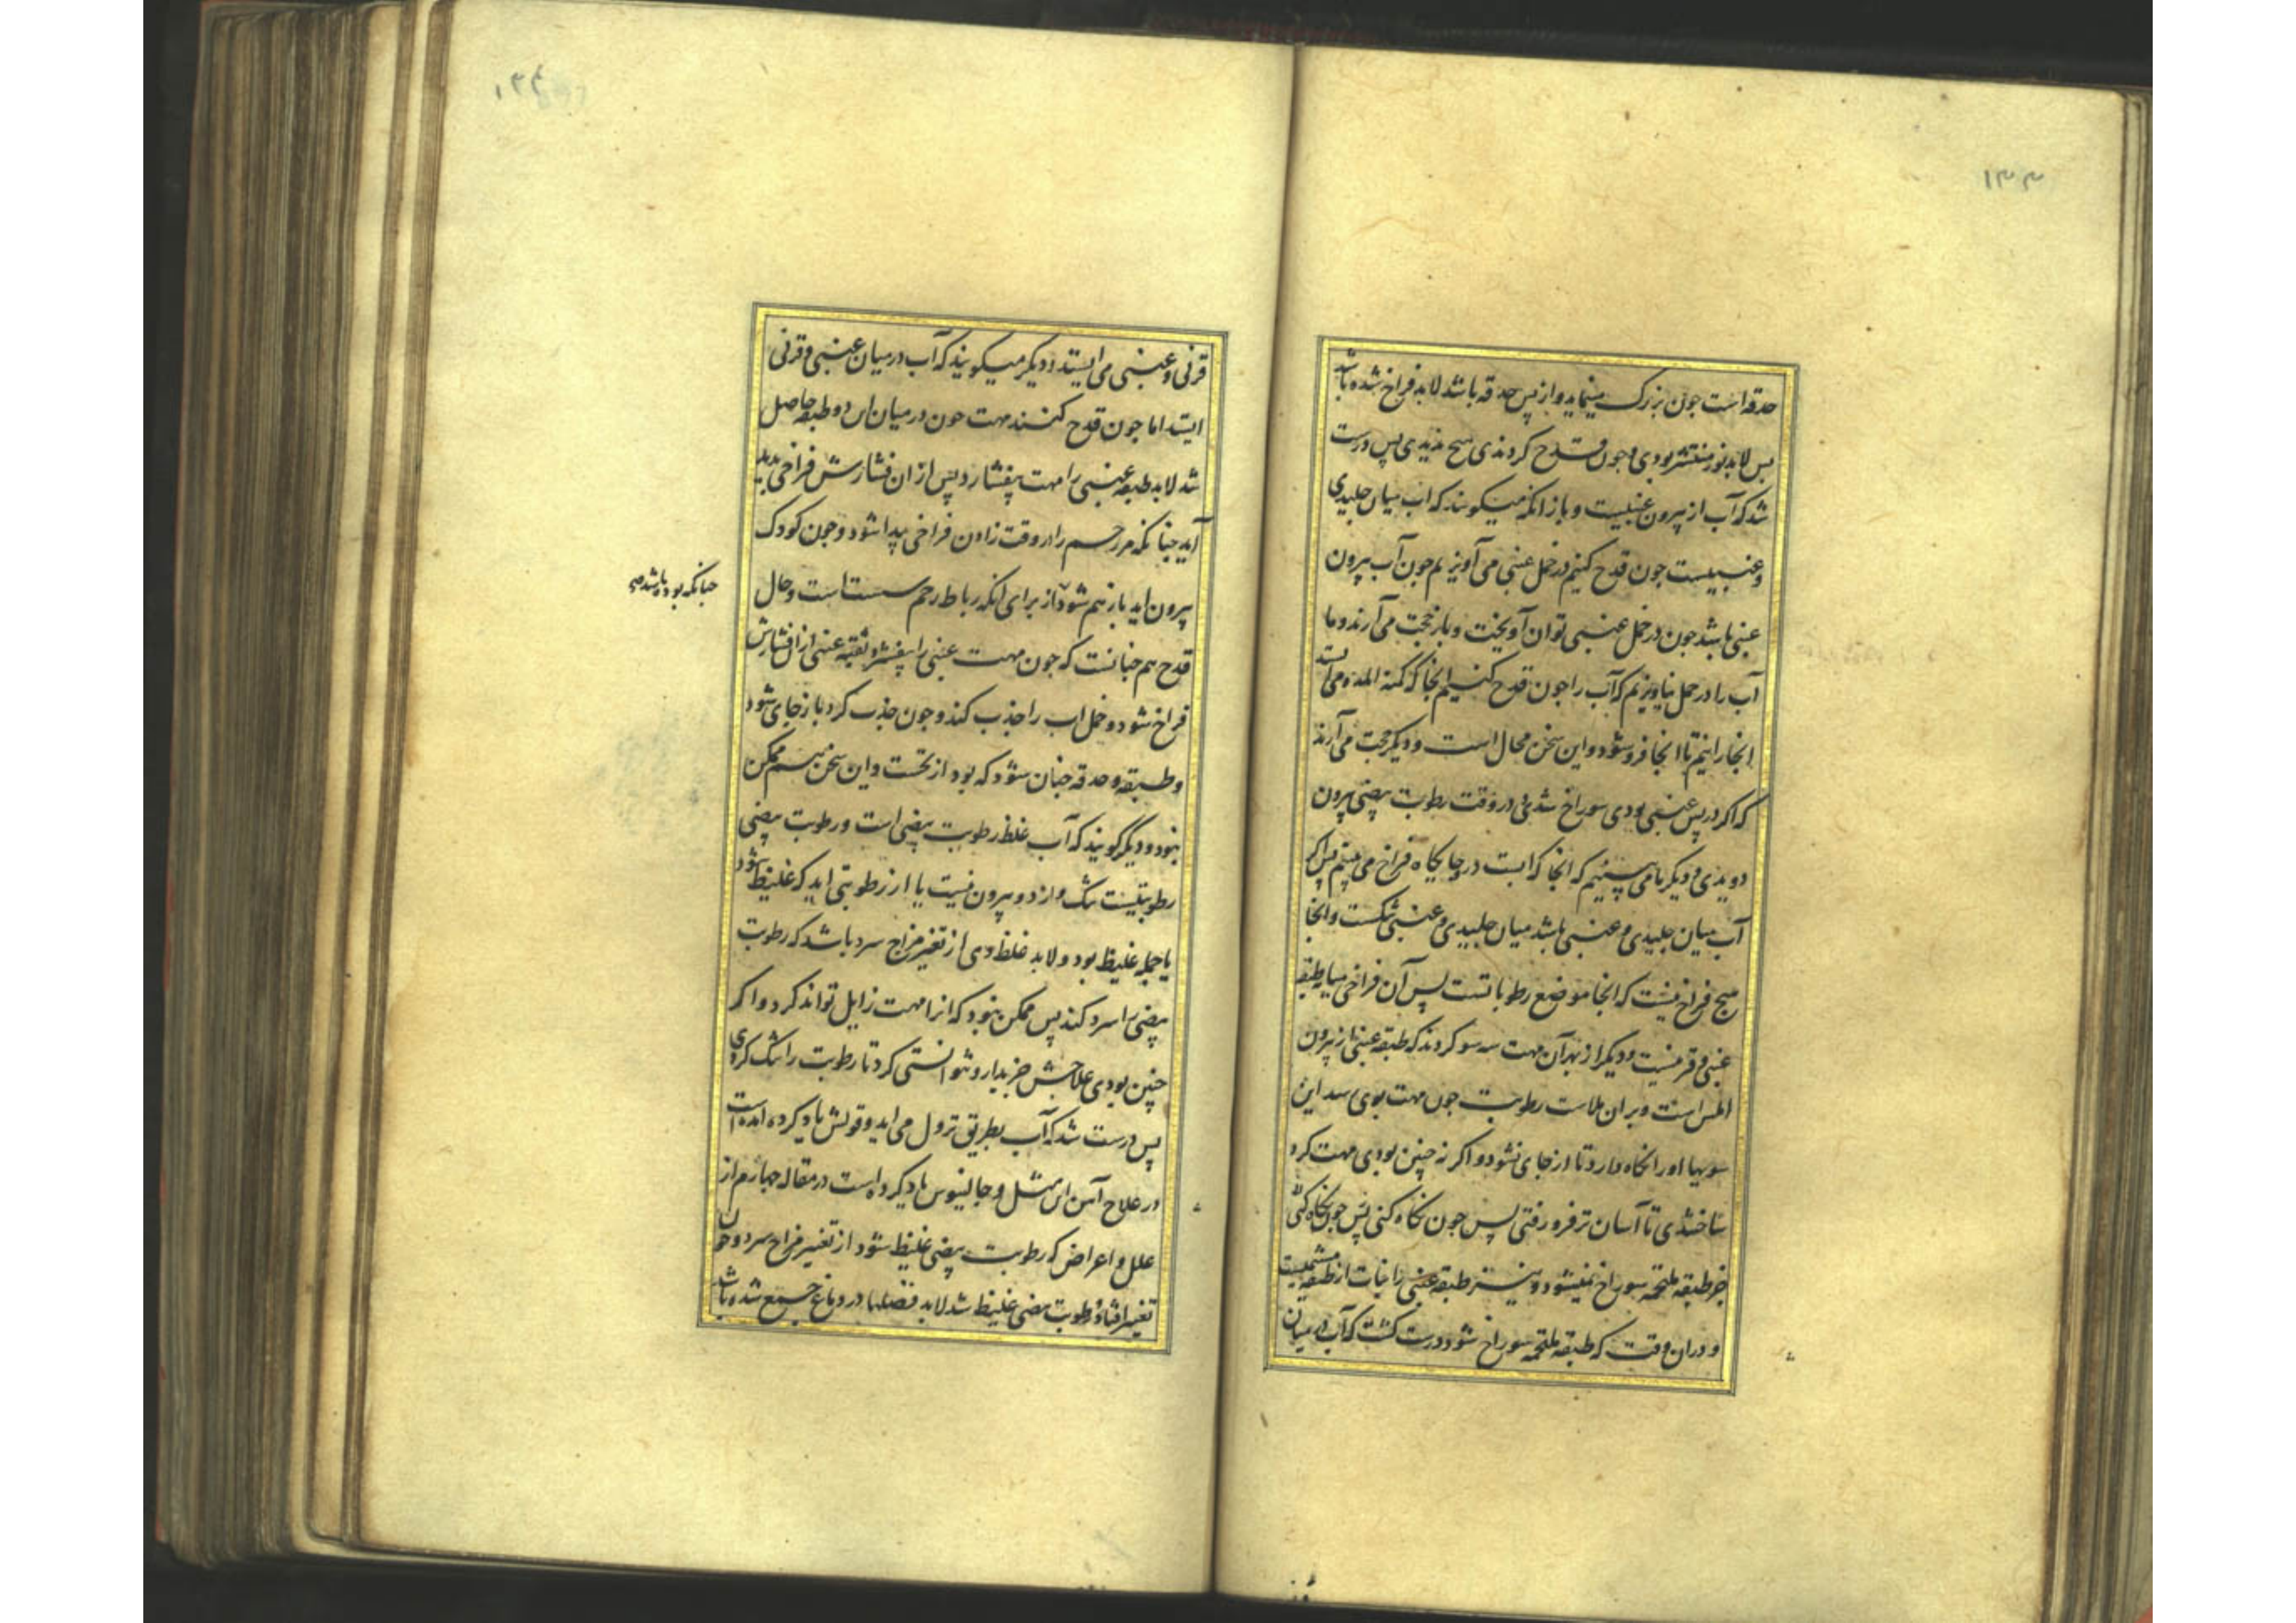 ۱۳۳
حدقه است جون بزرک مینماید و از پس حدقه باشد لابد فراخ شده باشد
پس لابد نور منتشر بودی و جون قدح کردندی هیچ ندیدی پس درست
شد که آب از بیرون عنبیست و باز انکه میکویند که اب میان جلیدی
و عنبییست جون قدح کنیم در خمل عنبی می آویزیم جون آب بیرون
عنبی باشد جون در خمل عنبی توان آویخت و باز حجت می آرند و ما
آب را در خمل نیاویزیم که آب را جون قدح کنیم انجا که کمنة المده می ایستد
انجا رانیم تا انجا فرو شود و این سخن محال است و دیکر حجت می آرند
که اکر در پس عنبی بودی سوراخ شدی در وقت رطوبت بیضی بیرون
دویدی و دیکر ما می بینیم که انجا که ابست در جایکاه فراخ می بینم پس اکر
آب میان جلیدی و عنبی باشد میان جلیدی و عنبی شکست و انجا
هیج فراخ نیست که انجا موضع رطوباتست پس آن فراخی میان طبقه
عنبی و قرنیست و دیکر از بهر آن مهت سه سو کردند که طبقه عنبی از بیرون
املس است و بر ان ملاست رطوبت جون مهت بودی سه این
سویها او را نکاه دارد تا از جای نشود و اکر نه چنین بودی مهت کرد
ساختندی تا آسان تر فرو رفتی پس جون نکاه کنی پس جون نکاه کنی
جز طبقه ملتحمه سوراخ نمیشود و نیز طبقه عنبی را نبات از طبقه مشیمیست
و دران وقت که طبقه ملتحمه سوراخ شود درست کشت که آب در میان
۱۳۴
قرنی و عنبی می ایستد و دیکر میکویند که آب در میان عنبی و قرنی
ایستد اما جون قدح کنند مهت جون در میان این دو طبقه حاصل
شد لابد طبقه عنبی را مهت بفشارد پس از ان فشارش فراخی پدید
آید جنانکه مر رحم را در وقت زادن فراخی پیدا شود و جون کودک
بیرون اید باز هم شود از برای انکه رباط رحم سست است و حال
جنانکه بوده باشد
قدح هم جنانست که جون مهت عنبی را بفشرد ثقبه عنبی از ان فشارش
فراخ شود و خمل اب را جذب کند و جون جذب کرد باز جای شود
و طبقه و حدقه جنان شود که بود از نخست و این سخن هم ممکن
نبود و دیکر کویند که آب غلظ رطوبت بیضی است و رطوبت بیضی
رطوبتیست تنک و از دو بیرون نیست یا از رطوبتی اید که غلیظ شود
یا جمله غلیظ بود و لابد غلظ وی از تغیر مزاج سرد باشد که رطوبت
بیضی را سرد کند پس ممکن نبود که انرا مهت زایل تواند کرد و اکر
چنین بودی علاجش جز بدارو نتوانستی کرد تا رطوبت را تنک کردی
پس درست شد که آب بطریق نزول می اید و قولش یاد کرده امده است
در علاح آمن این مثل و جالینوس یاد کرده است در مقاله جهارم از
علل و اعراض که رطوبت بیضی غلیظ شود از تغییر مزاح سرد و جون
تغییر افتاد و رطوبت بیضی غلیظ شد لابد فضلها در دماغ جمع شده باشد